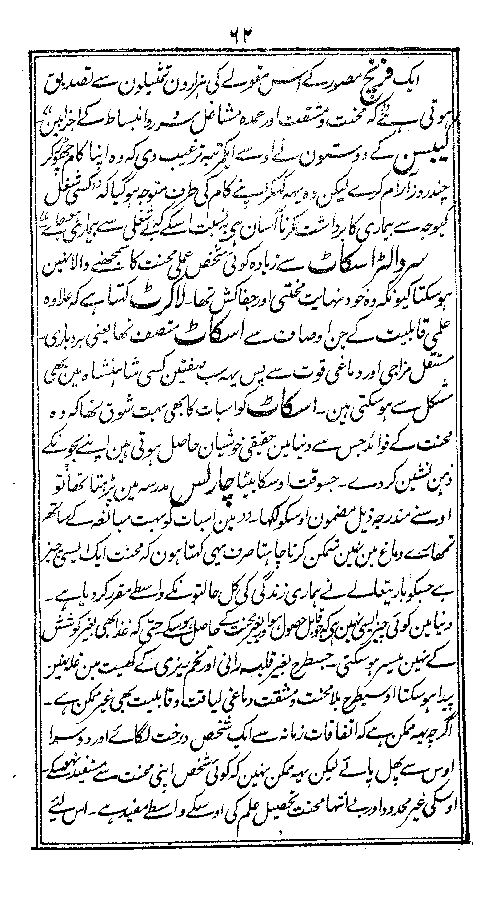 ۶۲
ایک فرنچ مصور کے اس مقولے کی ہزارون تمثیلون سے تصدیق
ہوتی ہے کہ محنت و مشقت اور عمدہ مشاغل سرور و انبساط کے اجزا ہین
کے دوستون نے اوسے ایکمرتبہ ترغیب دی کہ وہ اپنا کام چھوڑکر
چند روز آرام کرے لیکن وہ یہہ کہکر اپنے کام کی طرف متوجہ ہوگیا کہ کسی شغل
کیوجہ سے بیماری کا برداشت کرنا آسان ہی بہ نسبت اسکے کہ بے شغلی سے بیماری
سر والٹر اسکاٹ سے زیادہ کوئی شخص عملی محنت کا سمجھنے والا نہین
ہوسکتا کیونکہ وہ خود نہایت محنتی اور جفاکش تھا۔ لاکرٹ کہتا ہے کہ علاوہ
علمی قابلیت کے جن اوصاف سے اسکاٹ متصف تھا یعنی بردباری۔
مستقل مزاجی اور دماغی قوت سے پس یہہ سب صفتین کسی شاہنشاہ مین بھی
مشکل سے ہوسکتی ہین۔ اسکاٹ کو اسبات کا بھی بہت شوق تھا کہ وہ
محنت کے فوائد جس سے دنیا مین حقیقی خوشیان حاصل ہوتی ہین اپنے بچونکے
ذہن نشین کردے۔ جسوقت اوسکا بیٹا چارلس مدرسہ مین پڑہتا تھا تو
اوسنے مندرجہ ذیل مضمون اوسکو لکھا۔ مین اسبات کو بہت مبالغہ کے ساتھہ
تمھارے دماغ مین نہین متمکن کرنا چاہتا صرف یہی کہتا ہون کہ محنت ایک ایسی چیز
ہے جسکو باریتعالے نے ہماری زندگی کی کل حالتونکے واسطے مقرر کردیا ہے۔
دنیا مین کوئی چیز ایسی نہین ہے کہ جو قابل حصول ہو اور بغیر محنت کے حاصل ہوسکے حتی کہ غذا بھی بغیر کوشش
کے نہین میسر ہوسکتی۔ جسطرح بغیر قلبہ رانی اور تخم ریزی کے کھیت مین غلہ نہین
پیدا ہوسکتا اوسیطرح بلا محنت و مشقت دماغی لیاقت و قابلیت بھی غیر ممکن ہے۔
اگرچہ یہہ ممکن ہے کہ اتفاقات زمانہ سے ایک شخص درخت لگائے اور دوسرا
اوس سے پھل پائے لیکن یہہ ممکن نہین کہ کوئی شخص اپنی محنت سے مستفید نہوسکے۔
اوسکی غیر محدود اور بے انتہا محنت تحصیل علم کی اوسکے واسطے مفید ہے۔ اس لئے